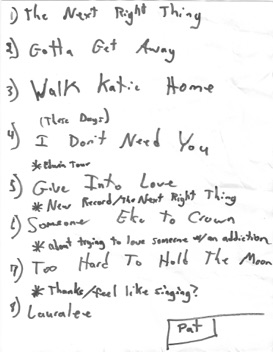 1) The Next Right Thing
2) Gotta Get Away
3) Walk Katie Home
(These Days)
4) I Don't Need You
*Edwin Tour
5) Give Into Love
* New Record/The Next Right Thing
6) Someone Else to Crown
* about trying to love someone w/an addiction
7) Too Hard To Hold The Moon
* Thanks/feel like singing?
8) Lauralee
Pat